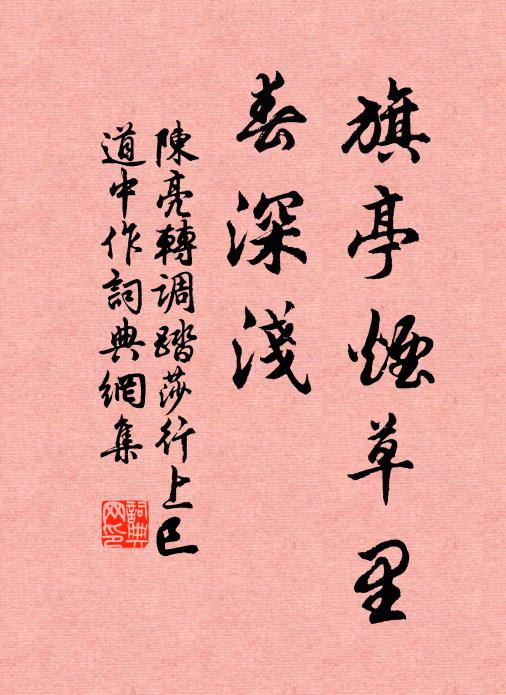 旗亭煙草里
春深淺
陳亮轉調踏莎行上巳
道中作詞典網集
詞典
网印